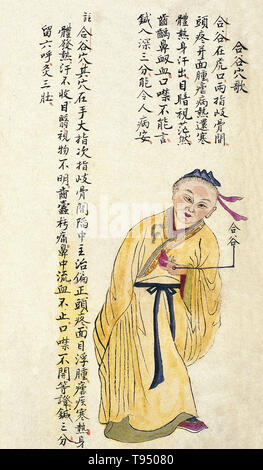 合谷穴歌
合谷在虎口兩指歧骨間
頭疼并面腫瘧病熱還寒
體熱身汗出目暗視茫然
齒齲鼻衄血口噤不能言
鍼入深三分能令人病安
註
合谷穴其穴在手大指次指歧骨間陷中主治偏正頭疼面目浮腫瘧疾寒熱身
體發熱汗不收目翳視物不明齒齲朽痛鼻中流血不止口噤不開等證鍼三分
留六呼灸三壯
合谷
alamy
Image ID: T95080
www.alamy.com